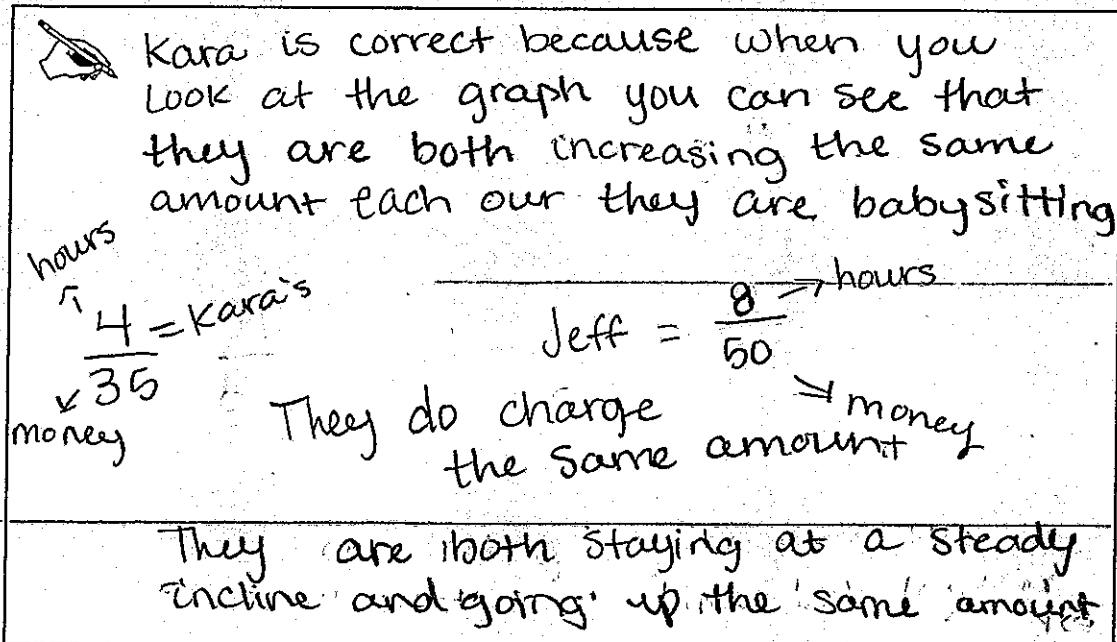 Kara is correct because when you
Look at the graph you can see that
they are both increasing the same
amount each our they are babysitting
hours
4 = Kara's
35
money
hours
Jeff = 8
50
money
They do charge
the same amount
They are both staying at a steady
incline and going up the same amount